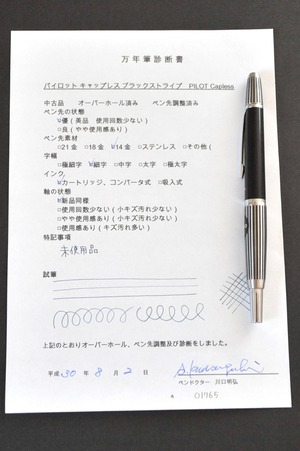 万年筆診断書
パイロット キャップレス ブラックストライプ　PILOT Capless
中古品　オーバーホール済み　ペン先調整済み
ペン先の状態
☑優（美品　使用回数少ない）
□良（やや使用感あり）
ペン先素材
□21金　□18金　☑14金　□ステンレス　□その他（
字幅
□極細字　☑細字　□中字　□太字　□極太字
インク
☑カートリッジ、コンバータ式　□吸入式
軸の状態
☑新品同様
□使用回数少ない（小キズ汚れ少ない）
□やや使用感あり（小キズ汚れ少ない）
□使用感あり（キズ汚れ多い）
特記事項
未使用品
試筆
上記のとおりオーバーホール、ペン先調整及び診断をしました。
平成 30 年 8 月 2 日
ペンドクター　川口明弘
01765